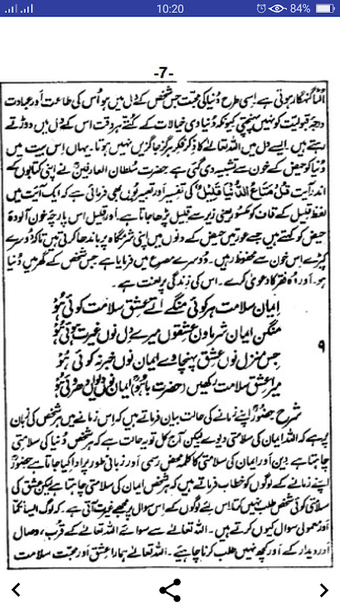 10:20
84%
-7-
الٹا گنہگار ہوتی ہے اسی طرح دُنیا کی محبت جس شخص کے دل میں ہو اُس کی طاعت اور عبادت
درجۂ قبولیت کو نہیں پہنچتی کیونکہ دُنیاوی خیالات کے کُتے ہر وقت اس کے دل میں دوڑتے
رہتے ہیں۔ ایسے دل میں اللہ تعالےٰ کا ذکر فکر ہرگز جاگزیں نہیں ہوتا۔ یہاں اس بیت میں
دُنیا کو حیض کے خون سے تشبیہ دی گئی ہے حضرت سُلطان العارفینؒ نے اپنی کتابوں کے
اندر آیت قُلْ مَتَاعُ الدُّنْيَا قَلِيْلٌ کی تفسیر اور تعبیر یُوں بھی فرمائی ہے کہ ایک آیت میں
لفظ قلیل کے قاف کو مکسُور یعنی زیر سے قلیل پڑھا جاتا ہے۔ اور قلیل اس پارچۂ خون آلودۂ
حیض کو کہتے ہیں جسے عورتیں حیض کے دنوں میں اپنی شرمگاہ پر باندھا کرتی ہیں تاکہ دُوسرے
کپڑے اس خون سے محفوظ رہیں۔ دُوسرے مصرع میں فرمایا ہے جس شخص کے گھر میں دُنیا
ہو۔ اور وہ فقر کا دعویٰ کرے۔ اس کی زندگی پر لعنت ہے۔
ایمان سلامت ہر کوئی منگے اتے عشق سلامت کوئی ھُو
منگن ایمان شرماون عشقوں میرے دل نوں غیرت ہوئی ھُو
جس منزل نوں عشق پہنچاوے ایمان نوں خبر نہ کوئی ھُو
میرا عشق سلامت رکھیں (حضرت باھُوؒ) ایمان
۹
شرح حضورؒ اپنے زمانے کی حالت بیان فرماتے ہیں کہ اس زمانے میں ہر شخص کی زبان
پر ہے کہ اللہ ایمان کی سلامتی دیوے لیکن آج کل تو یہ حالت ہے کہ ہر شخص دُنیا کی سلامتی
چاہتا ہے دین اور ایمان کی سلامتی کا کلمہ محض رسمی اور زبانی طور پر ادا کیا جاتا ہے حضورؒ
اپنے زمانے کے لوگوں کو خطاب فرماتے ہیں کہ ہر شخص ایمان کی سلامتی چاہتا ہے لیکن عشق کی
سلامتی کوئی شخص طلب نہیں کرتا اس لئے لوگوں کے اس سوال پر مجھے غیرت آتی ہے کہ لوگ ایسا نکما
اور معمولی سوال کیوں کرتے ہیں۔ اللہ تعالےٰ سے سوائے اللہ تعالےٰ کے قُرب، وصال
اور دیدار کے اور کچھ نہیں طلب کرنا چاہیئے۔ اللہ تعالےٰ ہمارا عشق اور محبت سلامت